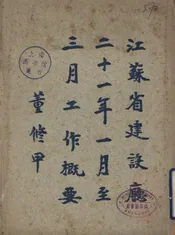 江蘇省建設廳
二十一年一月至
三月工作概要
董修甲